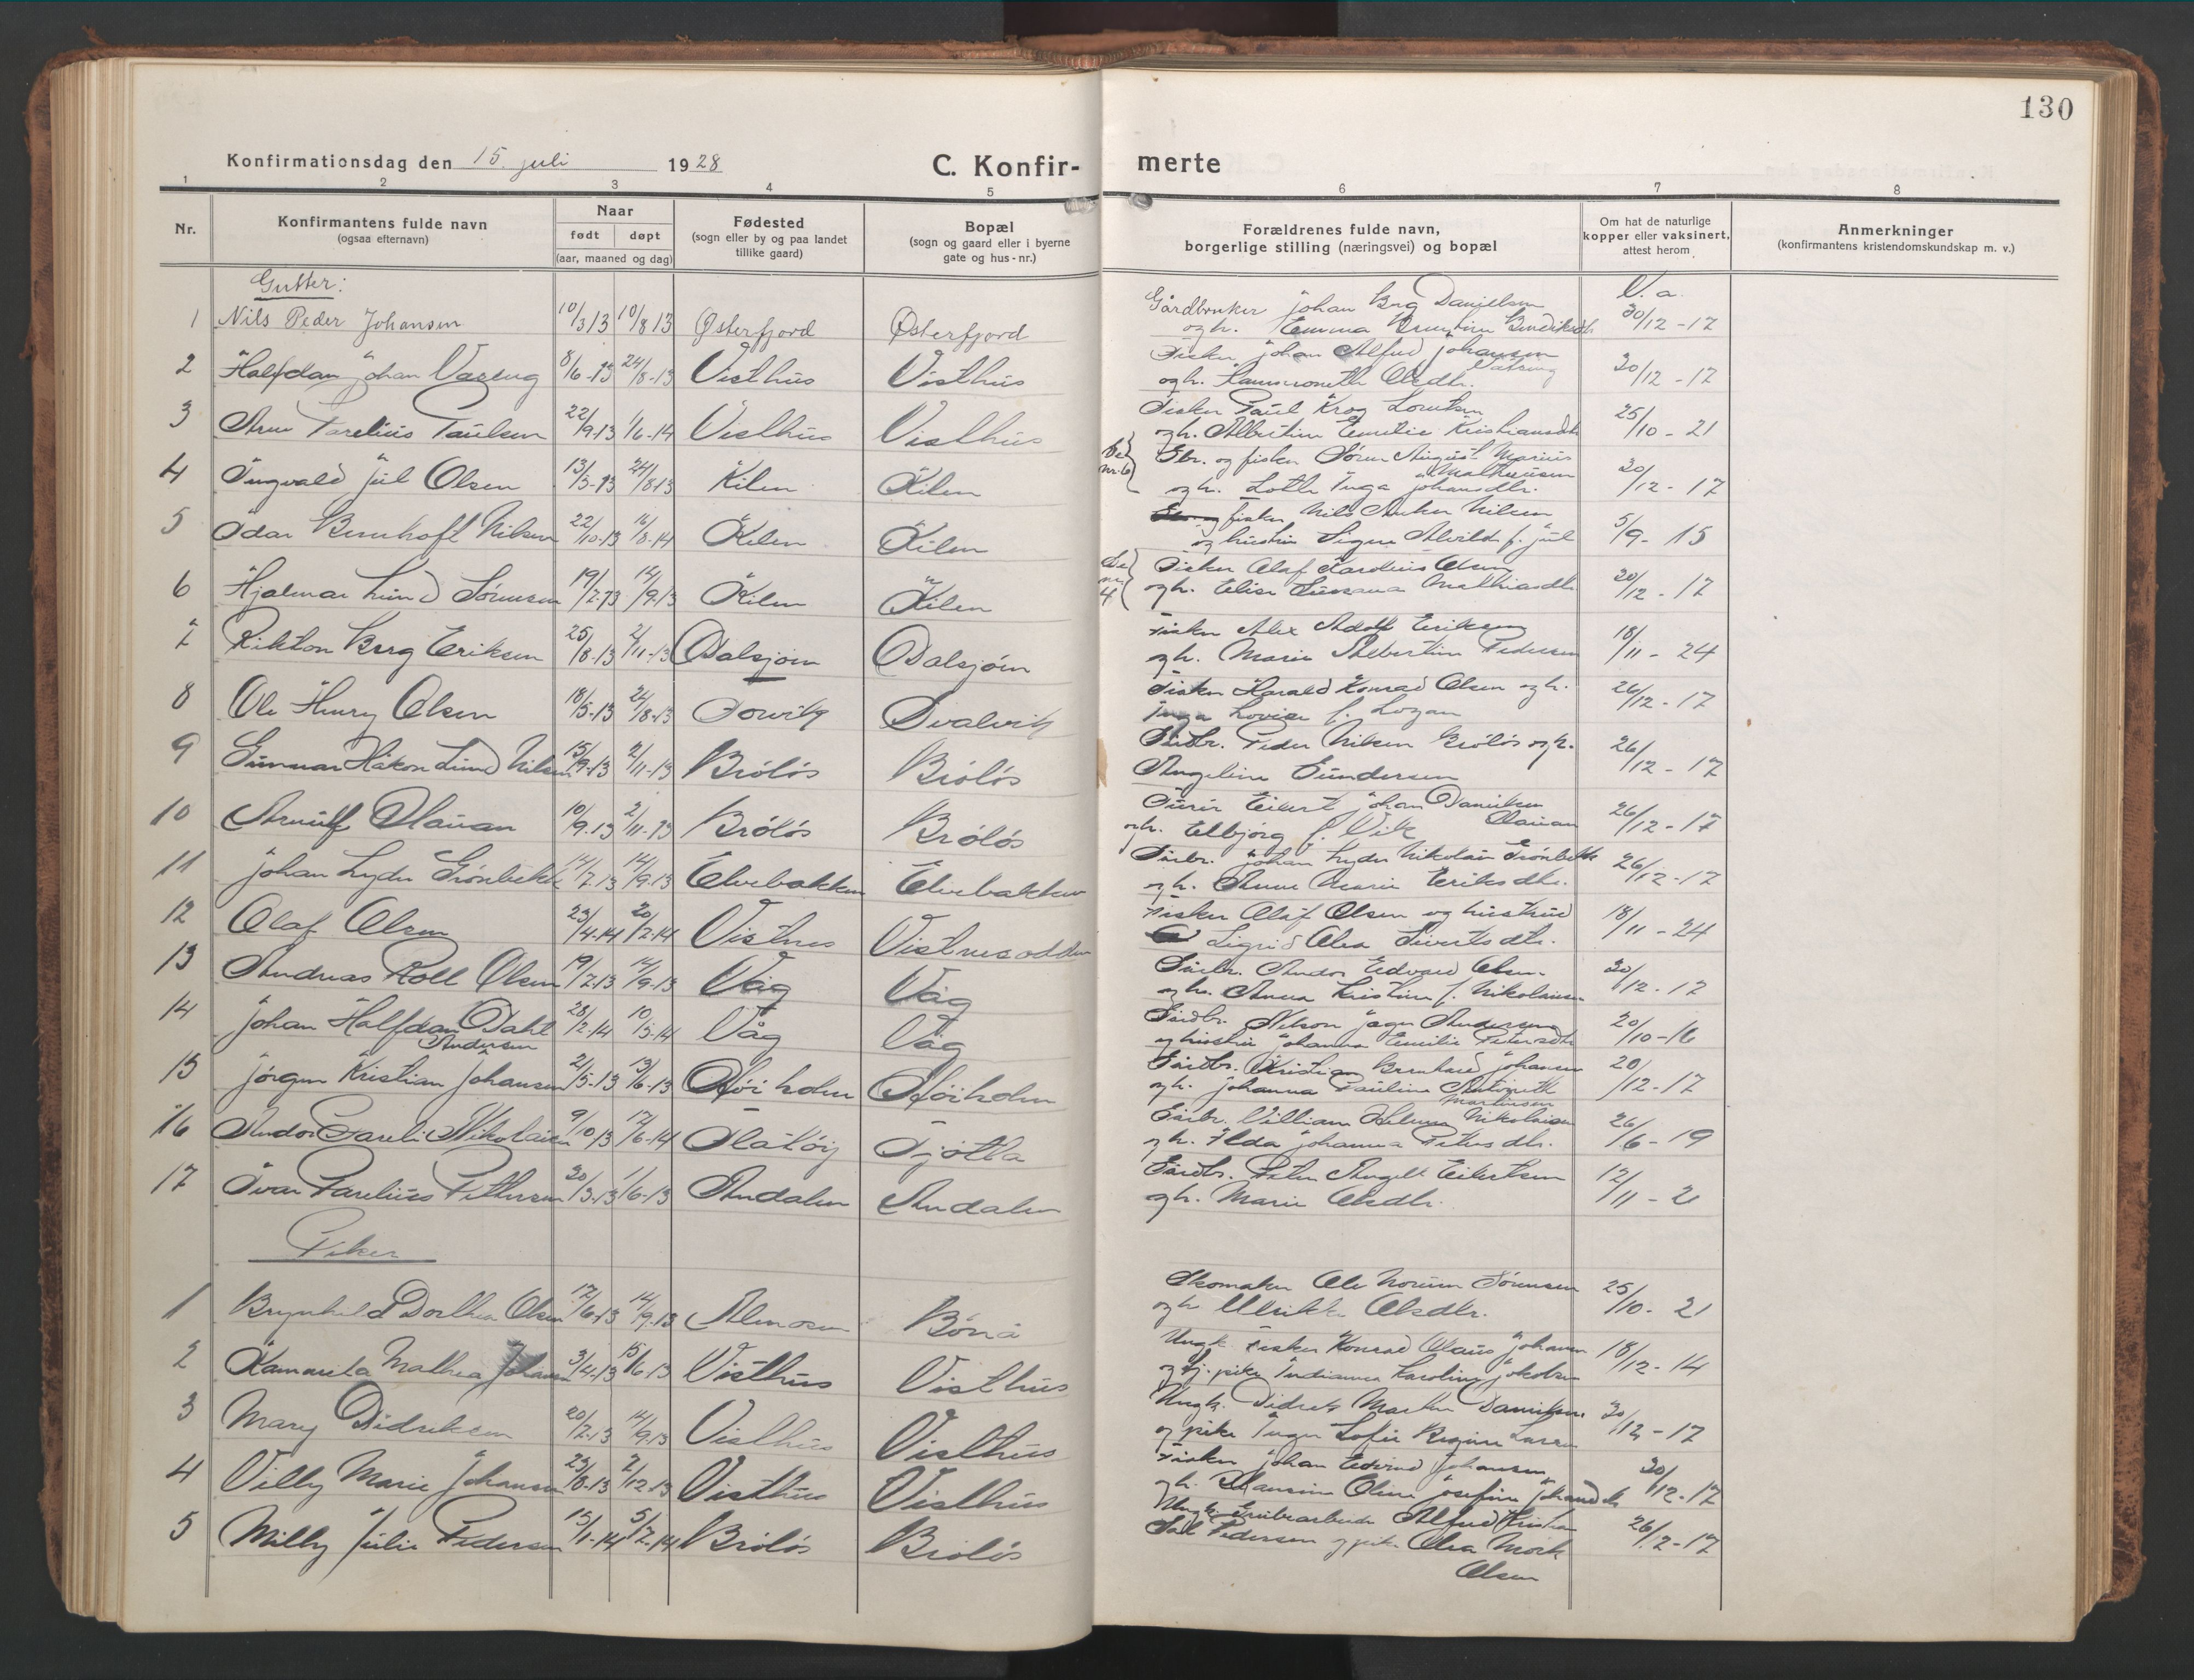 130
Konfirmationsdag den 15. juli 1928
C. Konfir-
merte
1 2 3 4 5 6 7 8
Nr.
Konfirmantens fulde navn
(ogsaa efternavn)
Naar
født døpt
(aar, maaned og dag)
Fødested
(sogn eller by og paa landet
tillike gaard)
Bopæl
(sogn og gaard eller i byerne
gate og hus-nr.)
Forældrenes fulde navn,
borgerlige stilling (næringsvei) og bopæl
Om hat de naturlige
kopper eller vaksinert,
attest herom
Anmerkninger
(konfirmantens kristendomskundskap m. v.)
Gutter:
V. a.
1 Nils Peder Johansen 10/3 13 10/8 13 Østerfjord Østerfjord
Gårdbruker Johan Berg Danielsen
og h. Emma 30/12-17
2 Halfdan Johan 8/6-13 24/8-13 Visthus Visthus
Fisker Johan Alfred Johansen
og h. Olsdtr. 30/12-17
3 Arne Parelius Paulsen 22/9-13 1/6-14 Visthus Visthus
Fisker Paul Krog Lorntsen
og h. Albertine Emelie Kristiansdtr 25/10-21
4 Ingvald Jul Olsen 13/5-13 24/8-13 Kilen Kilen
Se nr. 6
Gbr. og fisker Sören August Marius
Mathisen
og h. Lotte Inga Johansdtr. 30/12-17
5 Odar Bernhoft Nilsen 22/10-13 16/8-14 Kilen Kilen
fisker Nils Anker Nilsen
og hustru Signe Alvilde f. Jul 5/9-15
6 Hjalmar Lund Sörensen 19/7-13 14/9-13 Kilen Kilen
Se nr. 4
Fisker Olaf Kardius Olsen
og h. Elise Susanna Mathiasdtr 30/12-17
7 Rikton Berg Eriksen 25/8-13 2/11-13 Dalsjöen Dalsjöen
Fisker Alex Adolf Eriksen
og h. Marie Albertine Pedersen 18/11-24
8 Ole Henry Olsen 18/5-13 24/8-13 Forvik Dvalvik
Fisker Harald Konrad Olsen og h.
Inga Lovise f. Lozan 26/12-17
9 Gunnar Håkon Lund Nilsen 15/9-13 2/11-13 Brölös Brölös
Gårdbr. Peder Nilsen Brölös og h.
Angeline Gundersen 26/12-17
10 Arnulf Hauan 10/9-13 2/11-13 Brölös Brölös
Eilert Johan Danielsen
Hauan
og h. Elbjörg f. Vik 26/12-17
11 Johan Lyder Grönbekk 14/7-13 14/9-13 Elvebakken Elvebakken
Gårbr. Johan Lyder Nikolai Grönbekk
og h. Anne Marie Eriksdtr. 26/12-17
12 Olaf Olsen 23/4-14 20/7-14 Vistnes Vistnesodden
Fisker Olaf Olsen og hustru
Sigrid Olea Sivertsdtr. 18/11-24
13 Andreas Roll Olsen 19/7-13 14/9-13 Våg Våg
Gårbr. Andor Edvard Olsen
og h. Anna Kristine f. Nikolaisen 30/12-17
14 Johan Halfdan Dahl
Andersen 28/2-14 10/5-14 Våg Våg
Gårdbr. Nelson Jager Andersen
og hustru Johanna Emilie Petersdtr 20/10-16
15 Jörgen Kristian Johansen 2/5-13 13/6-13 Höiholm Höiholm
Gårdbr. Kristian Bernhard Johansen
og h. Johanna Pauline
Martinsen 20/12-17
16 Andor Nikolaisen 9/10 13 17/6-14 Flatöy Tjötta
Gårbr. Villiam Nikolaisen
og h. Hilda Johanna Petersdtr. 26/6-19
17 Ivar Parelius Pettersen 20/3-13 1/6-13 Andalen Andalen
Gårdbr. Peter Angell Eilertsen
og h. Marie Olsdtr. 12/11-21
Piker
1 Brynhild Dorthea Olsen 12/6-13 14/9-13 Almosen Bönå
Skomaker Ole Norum Sörensen
og h Ulrikke Olsdtr. 25/10-21
2 Mathea Johansen 3/4-13 15/6-13 Visthus Visthus
Ungk. fisker Konrad Olaus Johansen
og pike Indianna Karoline Jakobsen 18/12-14
3 Mary Didriksen 20/7-13 14/9-13 Visthus Visthus
Ungk. Didrik Martin Danielsen
og pike Inger Sofie Regine Larsen 30/12-17
4 Villy Marie Johansen 23/8-13 2/12-13 Visthus Visthus
Fisker Johan Edvind Johansen
og h. Hansine Oline Josefine Johansdtr 30/12-17
5 Milly Julie Pedersen 13/1-14 5/7-14 Brölös Brölös
Ungk. Grubearbeider Alfred Kristian
Pedersen og pike Olea Mork
Olsen 26/12-17